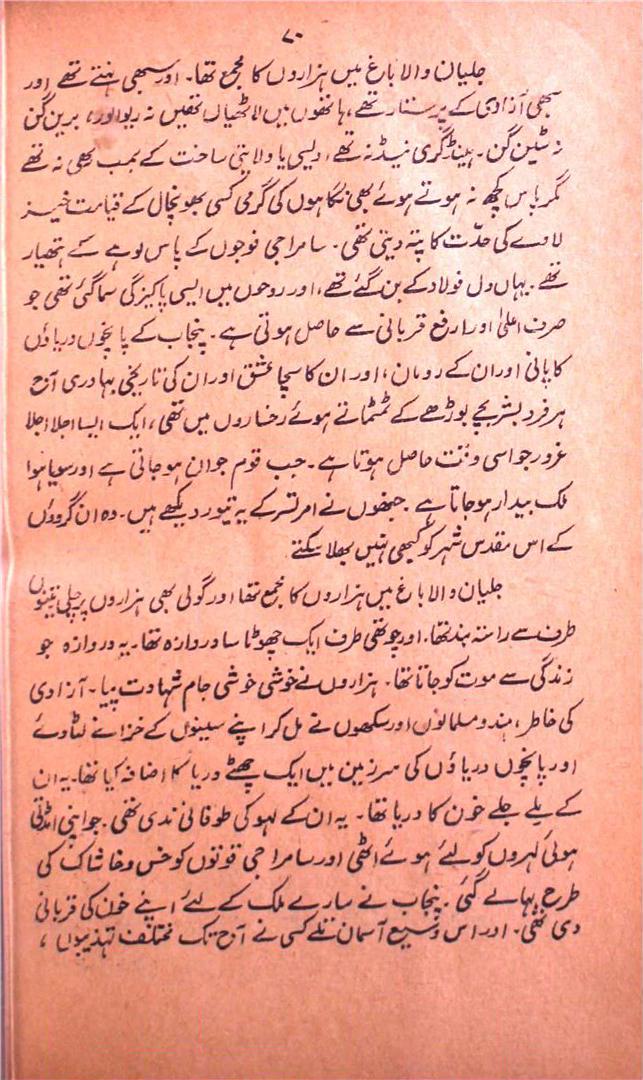 ۷۰
جلیان والا باغ میں ہزاروں کا مجمع تھا۔ اور سبھی نہتے تھے اور
سبھی آزادی کے پرستار تھے، ہاتھوں میں لاٹھیاں تھیں نہ ریوالور، برین گن
نہ سٹین گن۔ ہینڈ گری نیڈ نہ تھے، دیسی یا ولایتی ساخت کے بمب بھی نہ تھے
مگر پاس کچھ نہ ہوتے ہوئے بھی نگاہوں کی گرمی کسی بھونچال کے قیامت خیز
لاوے کی حدّت کا پتہ دیتی تھی۔ سامراجی فوجوں کے پاس لوہے کے ہتھیار
تھے۔ یہاں دل فولاد کے بن گئے تھے، اور روحوں میں ایسی پاکیزگی سما گئی تھی جو
صرف اعلیٰ اور ارفع قربانی سے حاصل ہوتی ہے۔ پنجاب کے پانچوں دریاؤں
کا پانی اور ان کے رومان، اور ان کا سچا عشق اور ان کی تاریخی بہادری آج
ہر فرد بشر بچے بوڑھے کے ٹمٹماتے ہوئے رخساروں میں تھی، ایک ایسا اجلا اجلا
غرور جو اسی وقت حاصل ہوتا ہے۔ جب قوم جوان ہو جاتی ہے اور سویا ہوا
ملک بیدار ہو جاتا ہے۔ جنھوں نے امرتسر کے یہ تیور دیکھے ہیں۔ وہ ان گروؤں
کے اس مقدس شہر کو کبھی نہیں بھلا سکتے
جلیان والا باغ میں ہزاروں کا مجمع تھا اور گولی بھی ہزاروں پر چلی تینوں
طرف سے راستہ بند تھا۔ اور چوتھی طرف ایک چھوٹا سا دروازہ تھا۔ یہ دروازہ جو
زندگی سے موت کو جاتا تھا۔ ہزاروں نے خوشی خوشی جام شہادت پیا۔ آزادی
کی خاطر، ہندو مسلمانوں اور سکھوں نے مل کر اپنے سینوں کے خزانے لٹا دئے
اور پانچوں دریاؤں کی سرزمین میں ایک چھٹے دریا کا اضافہ کیا تھا۔ یہ ان
کے ملے جلے خون کا دریا تھا۔ یہ ان کے لہو کی طوفانی ندی تھی۔ جو اپنی امڈتی
ہوئی لہروں کو لئے ہوئے اٹھی اور سامراجی قوتوں کو خس و خاشاک کی
طرح بہا لے گئی۔ پنجاب نے سارے ملک کے لئے اپنے خون کی قربانی
دی تھی۔ اور اس وسیع آسمان تلے کسی نے آج تک مختلف تہذیبوں،